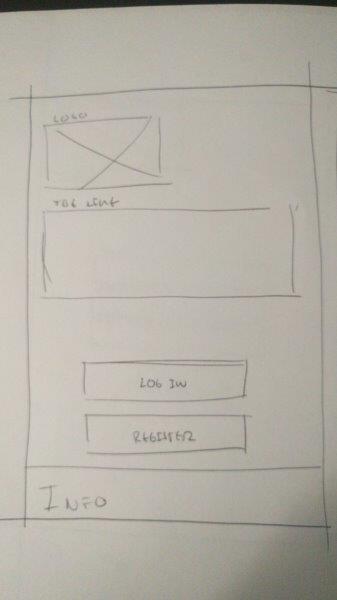 LOGO
TAG LINE
LOG IN
REGISTER
INFO